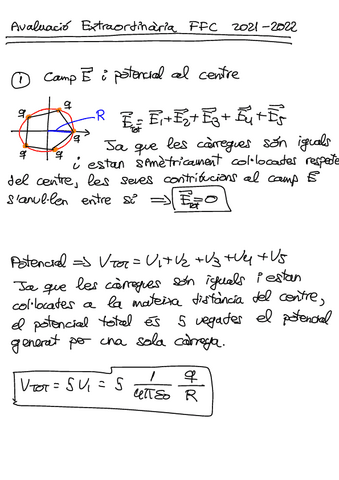 Avaluació Extraordinària FFC 2021-2022
① Camp E⃗ i potencial al centre
q q R
q q q
E⃗tot = E⃗1 + E⃗2 + E⃗3 + E⃗4 + E⃗5
Ja que les càrregues són iguals
i estan simètricament col·locades respecte
del centre, les seves contribucions al camp E⃗
s'anul·len entre sí ⟹ E⃗tot = 0
Potencial ⟹ VTOT = V1 + V2 + V3 + V4 + V5
Ja que les càrregues són iguals i estan
col·locades a la mateixa distància del centre,
el potencial total és 5 vegades el potencial
generat per una sola càrrega.
VTOT = 5 V1 = 5 1/4πε0 q/R